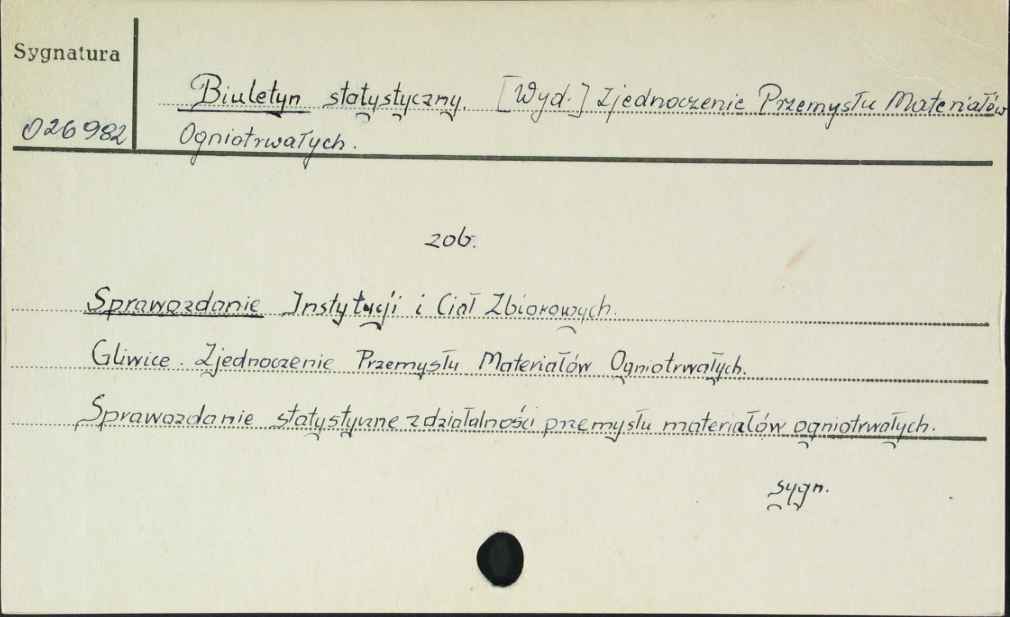 Sygnatura
026982
Biuletyn statystyczny. [Wyd.] Zjednoczenie Przemysłu Materiałów
Ogniotrwałych.
zob.
Sprawozdanie Instytucji i Ciał Zbiorowych.
Gliwice. Zjednoczenie Przemysłu Materiałów Ogniotrwałych.
Sprawozdanie statystyczne z działalności przemysłu materiałów ogniotrwałych.
sygn.